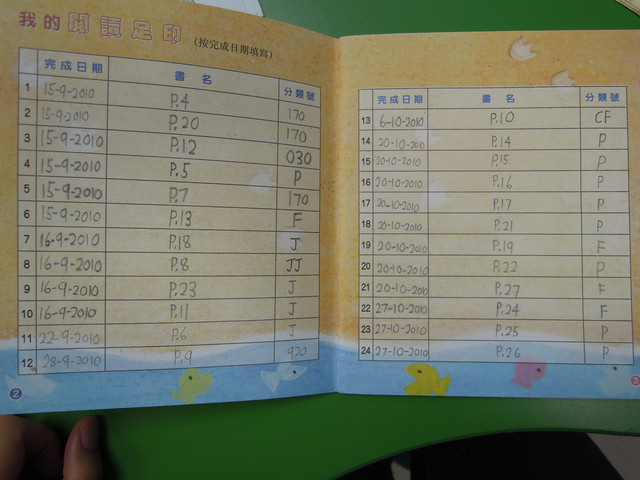 我的閱讀足印 (按完成日期填寫)
完成日期 書名 分類號
1 15-9-2010 P.4 170
2 15-9-2010 P.20 170
3 15-9-2010 P.12 030
4 15-9-2010 P.5 P
5 15-9-2010 P.7 170
6 15-9-2010 P.13 F
7 16-9-2010 P.18 J
8 16-9-2010 P.8 JJ
9 16-9-2010 P.23 J
10 16-9-2010 P.11 J
11 22-9-2010 P.6 J
12 28-9-2010 P.9 920
2
完成日期 書名 分類號
13 6-10-2010 P.10 CF
14 20-10-2010 P.14 P
15 20-10-2010 P.15 P
16 20-10-2010 P.16 P
17 20-10-2010 P.17 P
18 20-10-2010 P.21 P
19 20-10-2010 P.19 F
20 20-10-2010 P.22 P
21 20-10-2010 P.27 F
22 27-10-2010 P.24 F
23 27-10-2010 P.25 P
24 27-10-2010 P.26 P
3